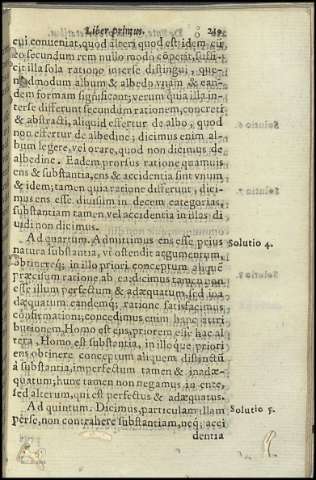 Liber primus. 219
cui conueniat, quod alteri quod est idem cū
eo secundum rem nullo modo cōpetit, suffi-
cit illa sola ratione interse distingui, que-
admodum album & albedo vnam & ean-
dem formam significant; verum quia illa in-
terse differunt secundum rationem, concreti
& abstracti, aliquid effertur de albo, quod
non effertur de albedine; dicimus enim al-
bum legere, vel orare, quod non dicimus de
albedine. Eadem prorsus ratione quamuis
ens & substantia, ens & accidentia sint vnum
& idem; tamen quia ratione differunt, dici-
mus ens esse diuisum in decem categorias,
substantiam tamen vel accidentia in illas di
uidi non dicimus.
Ad quartum. Admittimus ens esse prius
Solutio 4.
natura substantia, vt ostendit argumentum,
obtineréq; in illo priori conceptum aliquē
præcisum ratione ab ea; dicimus tamen non
esse illum perfectum & adæquatum, sed ina
dæquatum eandemq; ratione satisfacimus
confirmationi; concedimus enim hanc attri
butionem, Homo est ens, priorem esse hac al
tera, Homo est substantia, in illoque priori
ens obtinere conceptum aliquem distinctū
à substantia, imperfectum tamen & inadæ-
quatum; hunc tamen non negamus in ente,
sed alterum, qui est perfectus & adæquatus.
Ad quintum. Dicimus, particulam illam
Solutio 5.
perse, non contrahere substantiam, neq; acci
dentia